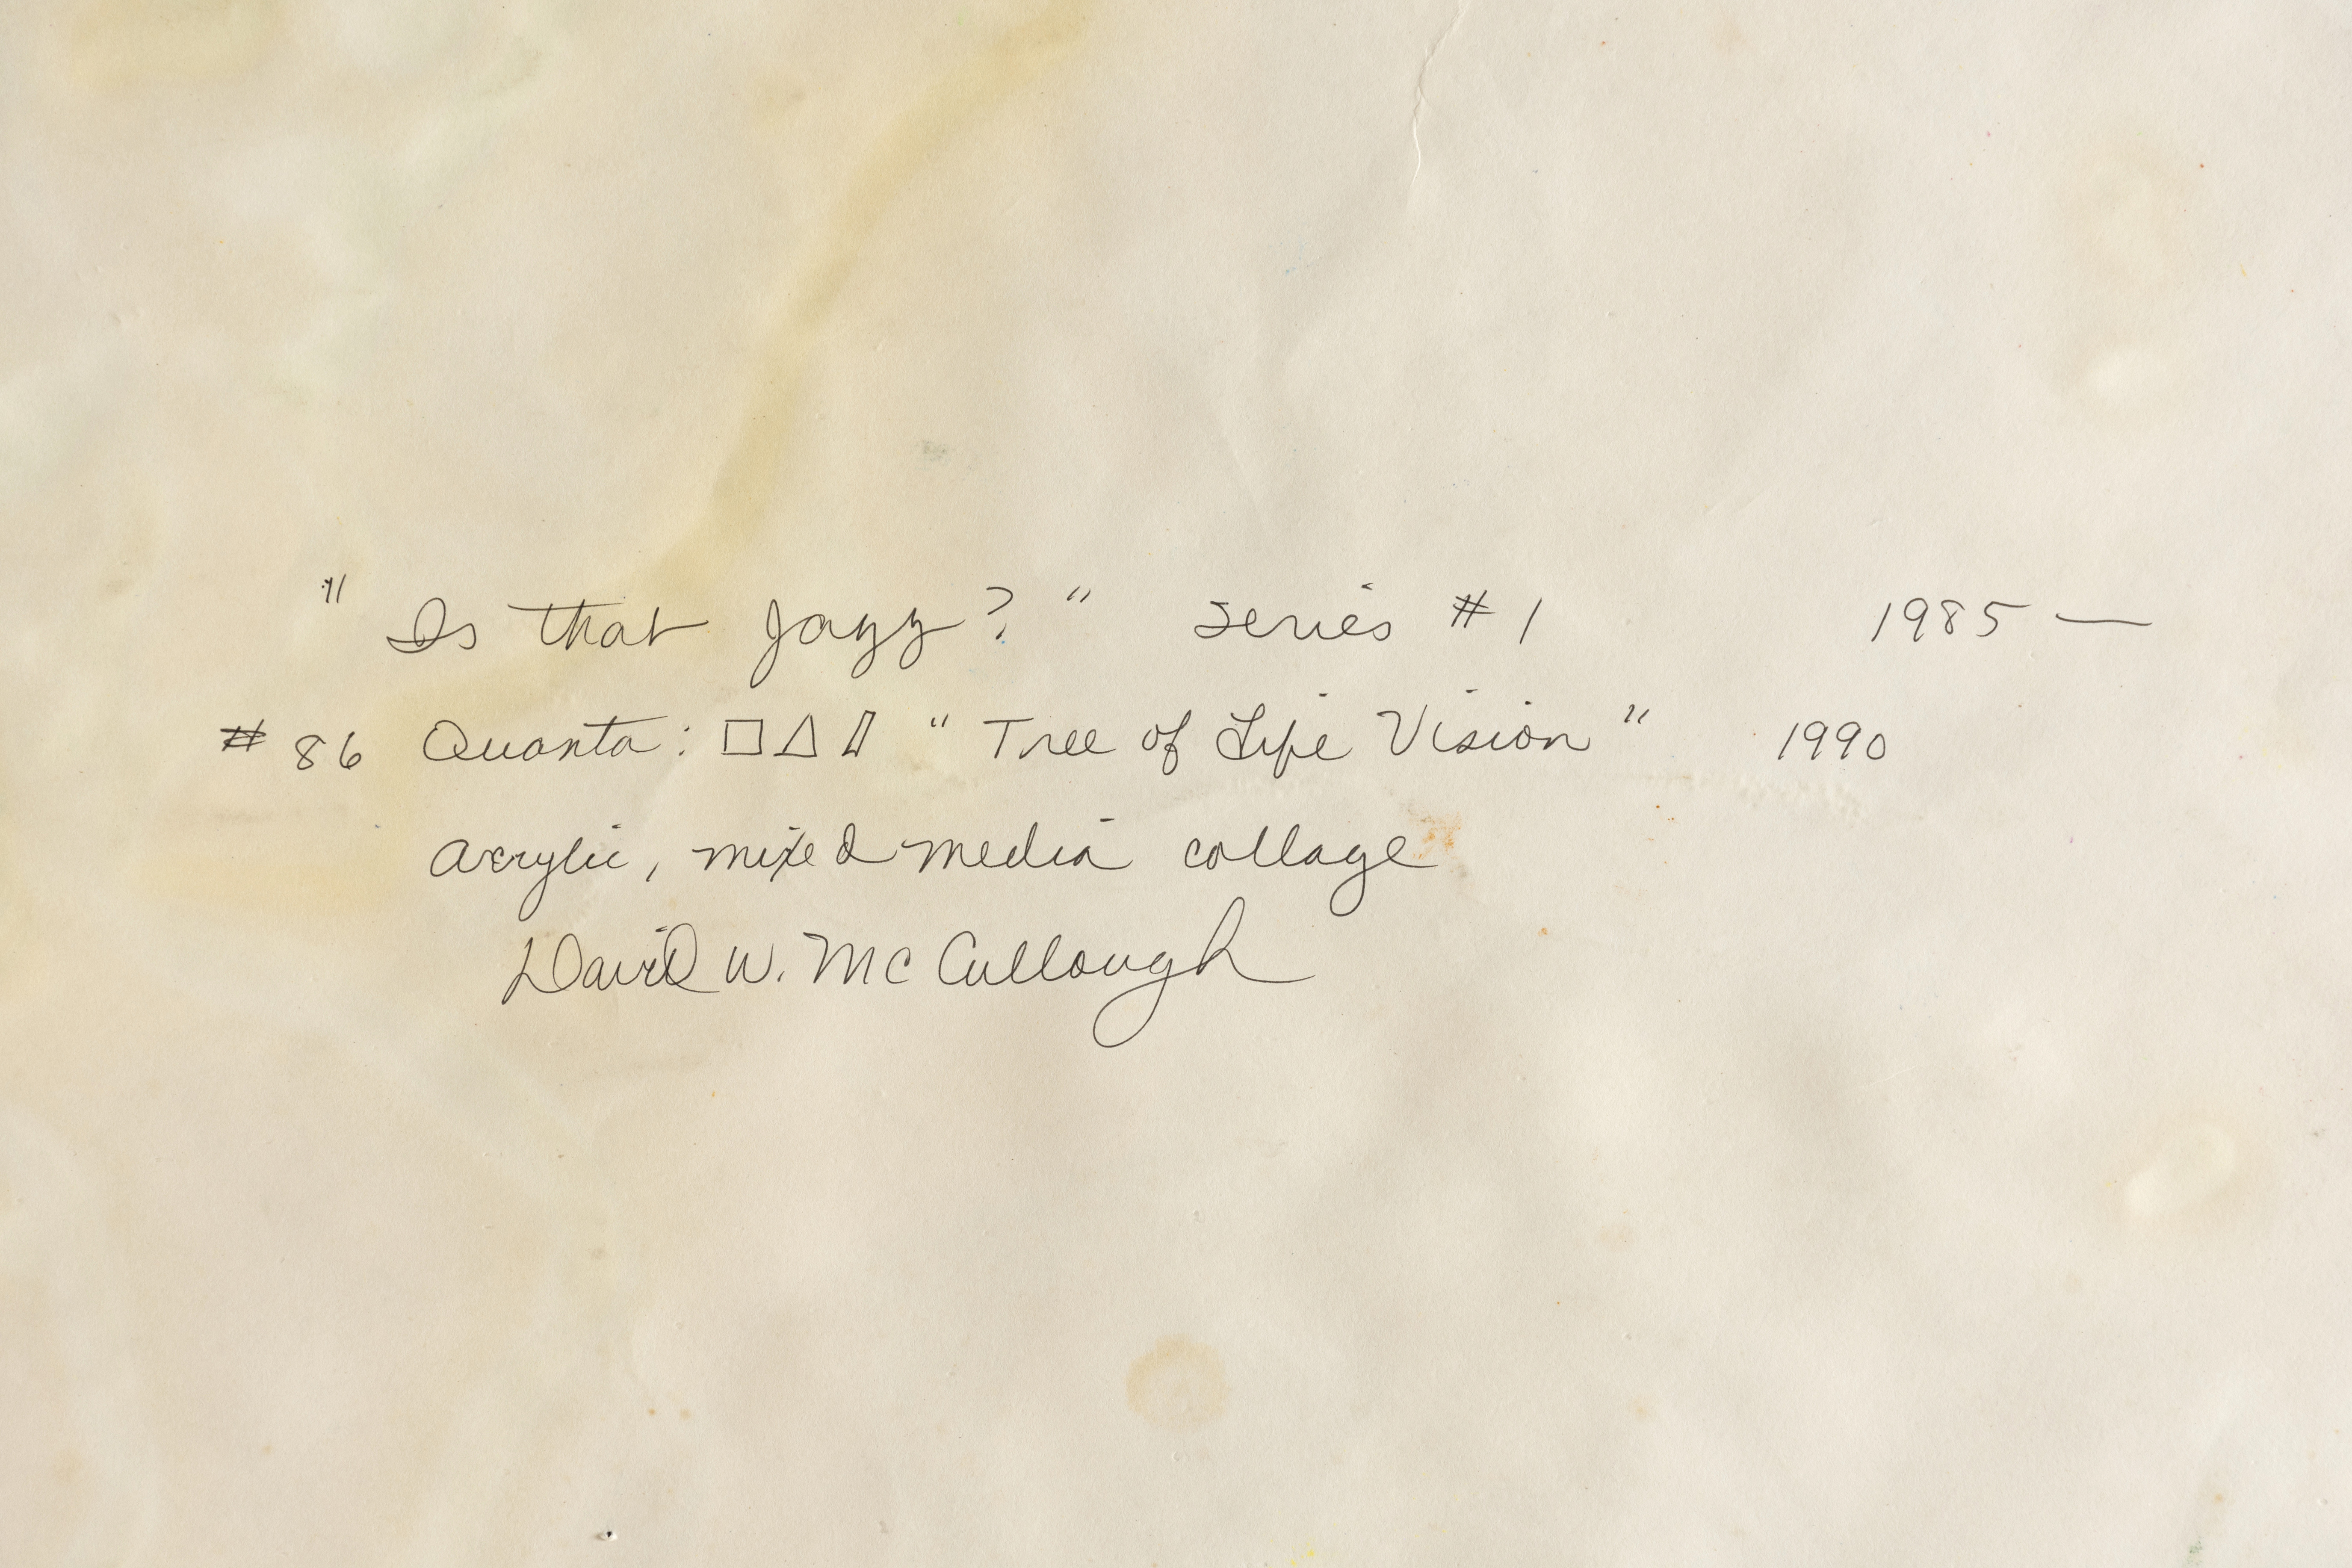 "Is that Jazz?" series #1 1985 —
#86 Quanta: □△▯ "Tree of Life Vision" 1990
acrylic, mixed media collage
David W. McCullough